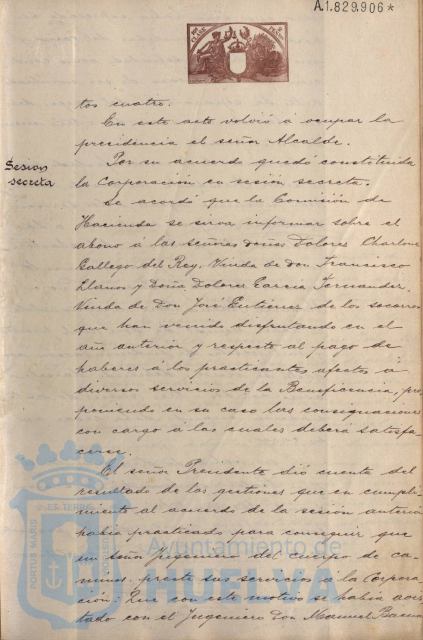 A.1.829.906*
tos cuatro.
En este acto volvió á ocupar la
presidencia el señor Alcalde.
Sesion
secreta
Por su acuerdo quedó constituida
la Corporación en sesión secreta.
Se acordó que la Comisión de
Hacienda se sirva informar sobre el
abono á las señoras doña Dolores Charlone
Gallego del Rey, Viuda de don Francisco
Llanos y Doña Dolores Garcia Fernandez,
Viuda de Don José Gutierrez de los socorros
que han venido disfrutando en el
año anterior y respecto al pago de
haberes á los practicantes afectos á
diversos servicios de la Beneficencia, pro
poniendo en su caso las consignaciones
con cargo á las cuales deberá satisfa
cerse.
El señor Presidente dió cuenta del
resultado de las gestiones que en cumpli-
miento al acuerdo de la sesión anterior
había practicado para conseguir que
un señor Ingeniero del cuerpo de ca-
minos, preste sus servicios á la Corpora-
ción: Que con este motivo se había avis
tado con el Ingeniero Don Manuel
PORTUS MARIS
Ayuntamiento de
HUELVA